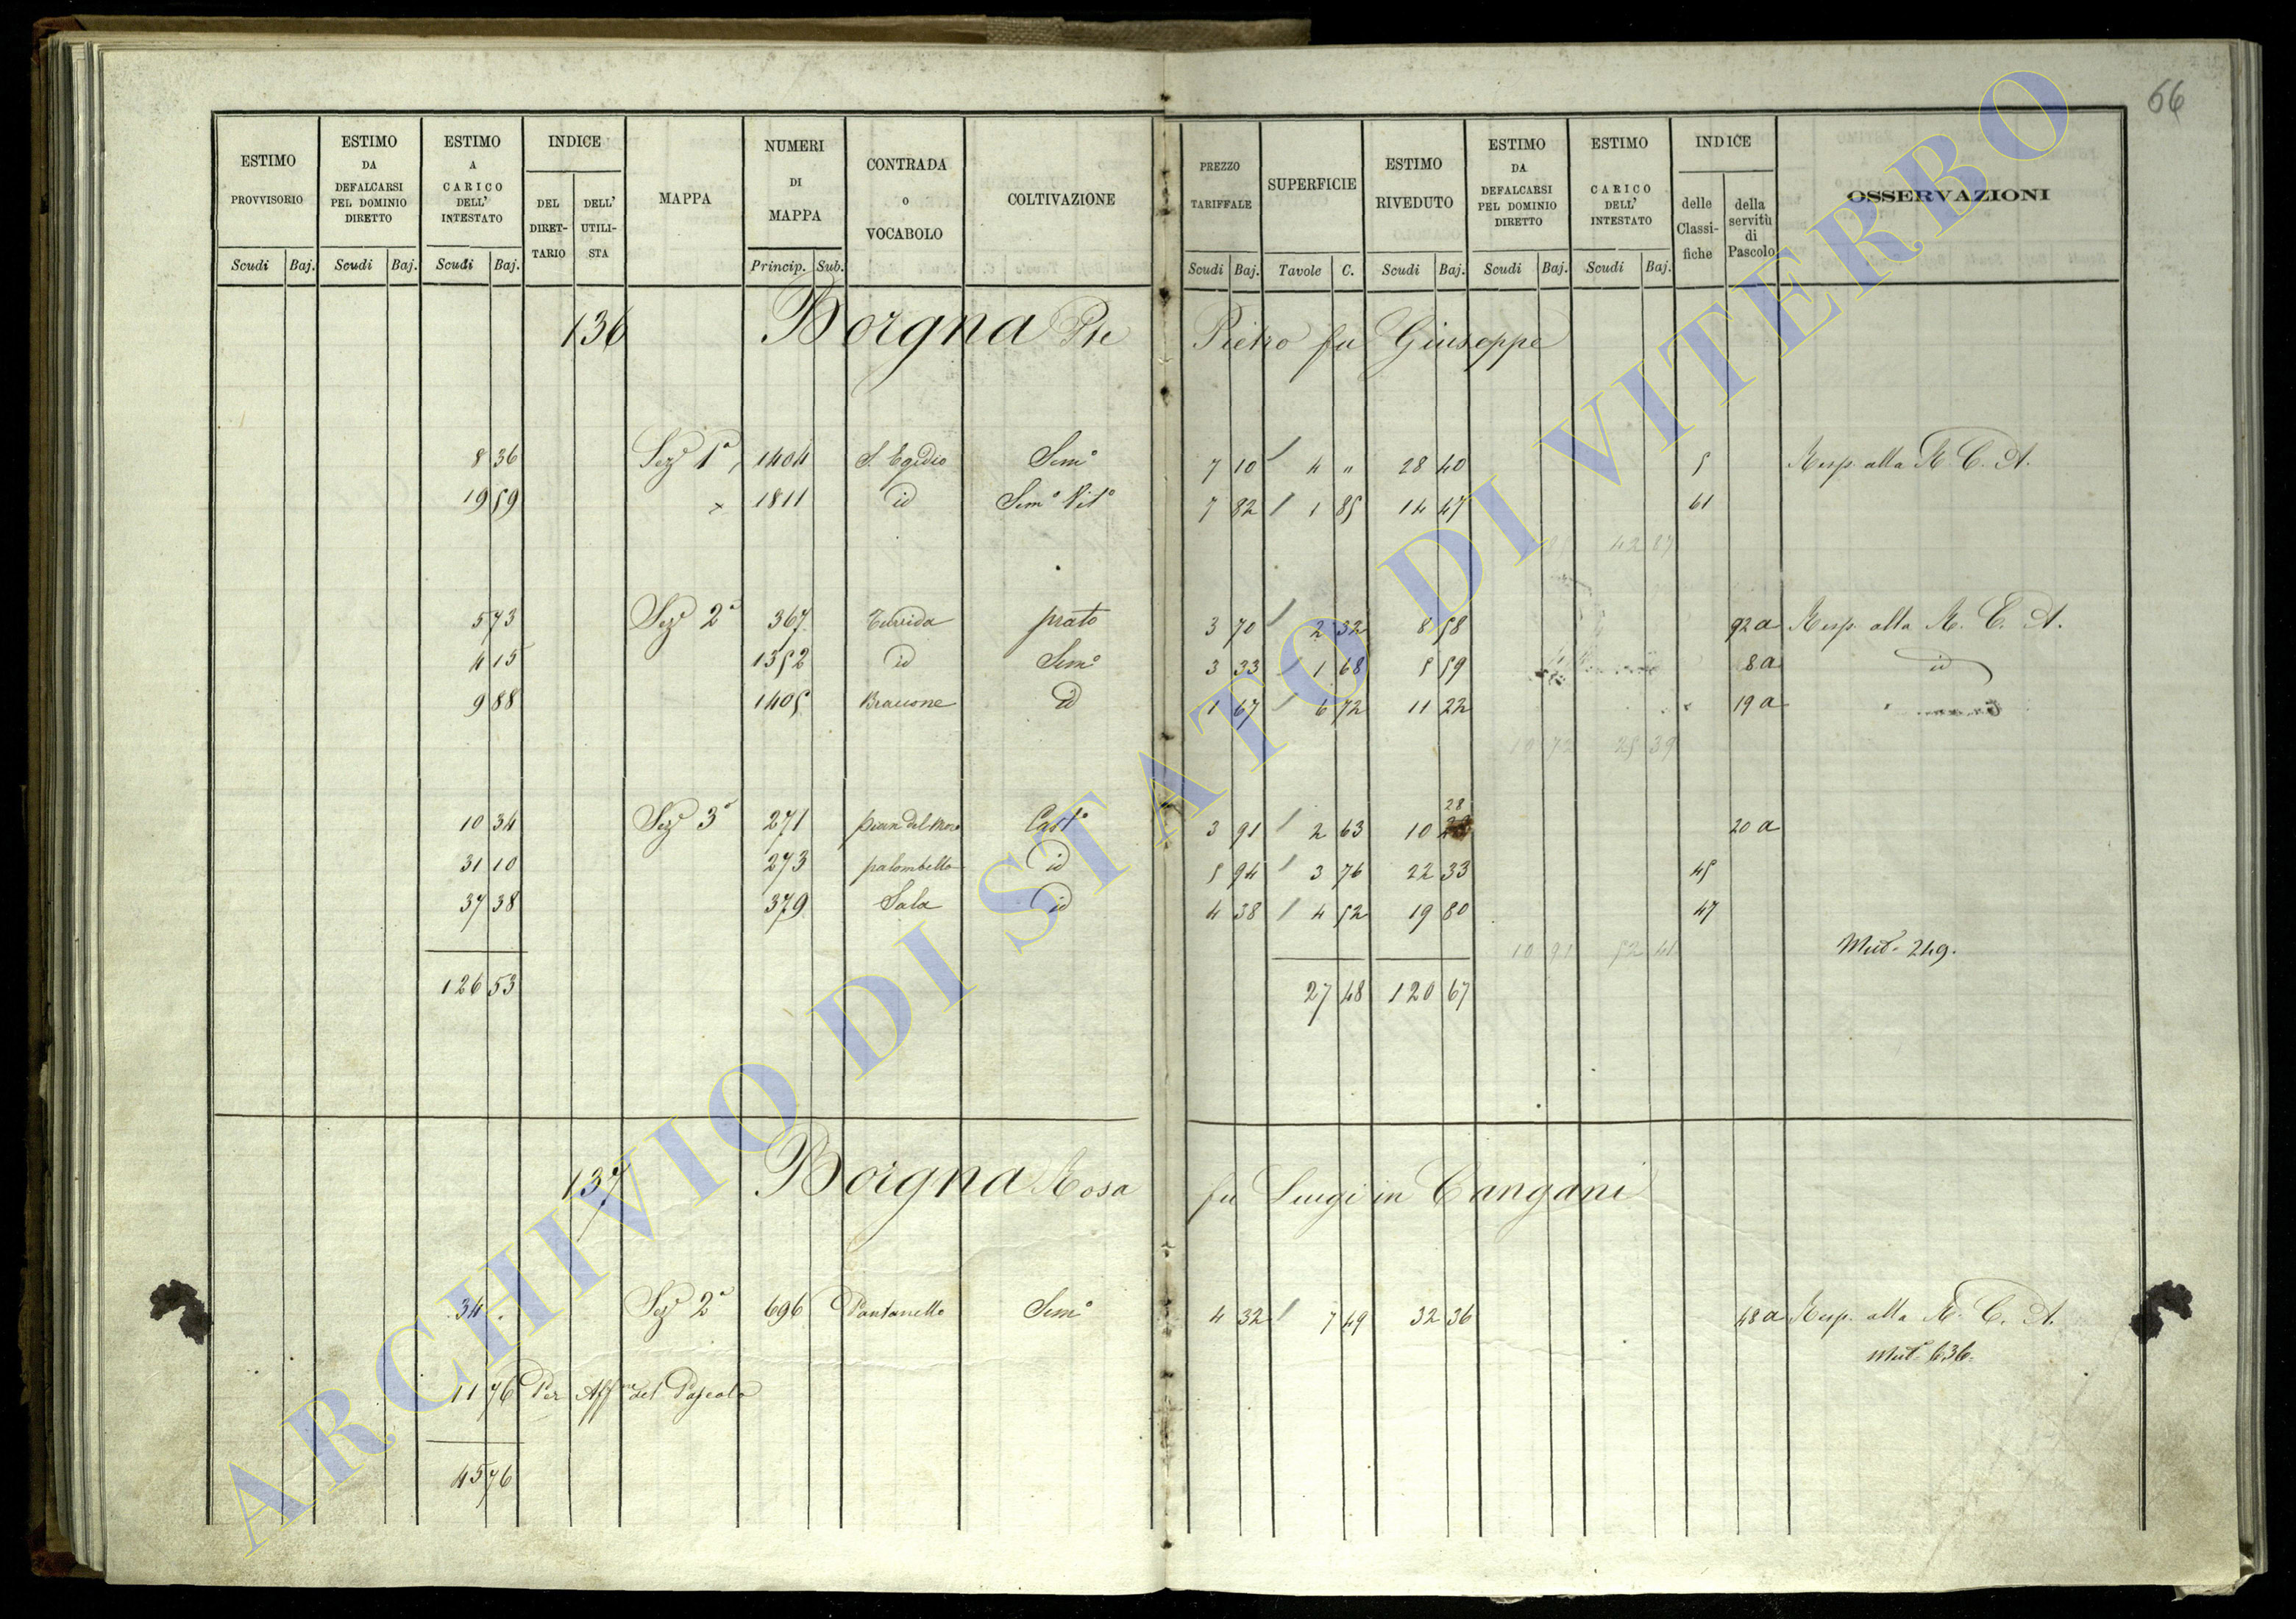 66
ESTIMO PROVVISORIO Scudi Baj. | ESTIMO DA DEFALCARSI PEL DOMINIO DIRETTO Scudi Baj. | ESTIMO A CARICO DELL' INTESTATO Scudi Baj. | INDICE DEL DIRETTARIO DELL' UTILISTA | MAPPA | NUMERI DI MAPPA Princip. Sub. | CONTRADA o VOCABOLO | COLTIVAZIONE | PREZZO TARIFFALE Scudi Baj. | SUPERFICIE Tavole C. | ESTIMO RIVEDUTO Scudi Baj. | ESTIMO DA DEFALCARSI PEL DOMINIO DIRETTO Scudi Baj. | ESTIMO CARICO DELL' INTESTATO Scudi Baj. | INDICE delle Classifiche della servitù di Pascolo | OSSERVAZIONI
136 Borgna Pietro fu Giuseppe
8 36 Sezᵉ 1ª 1404 S. Egidio Semº 7 10 4 " 28 40 5 Resp. alla R. C. A.
19 59 1811 id Semº Vitº 7 82 1 85 14 47 61
42 87
5 73 Sezᵉ 2ª 367 prato 3 70 2 32 8 58 92a Resp. alla R. C. A.
4 15 1352 id Semº 3 33 1 68 5 59 8a id
9 88 1405 Braccone id 1 67 6 72 11 22 19a
10 72 25 39
28
10 34 Sezᵉ 3ª 271 pian del Moro Castº 3 91 2 63 10 20a
31 10 273 palombella id 5 94 3 76 22 33 45
37 38 379 Sala id 4 38 4 52 19 80 47
10 91 52 41 Mut. 249.
126 53 27 48 120 67
137 Borgna Rosa fu Luigi in Cangani
34 . Sezᵉ 2ª 696 Pantanello Semº 4 32 7 49 32 36 48a Resp. alla R. C. A.
Mut. 636.
11 76 Per Affⁿᵉ del Pascolo
45 76
ARCHIVIO DI STATO DI VITERBO